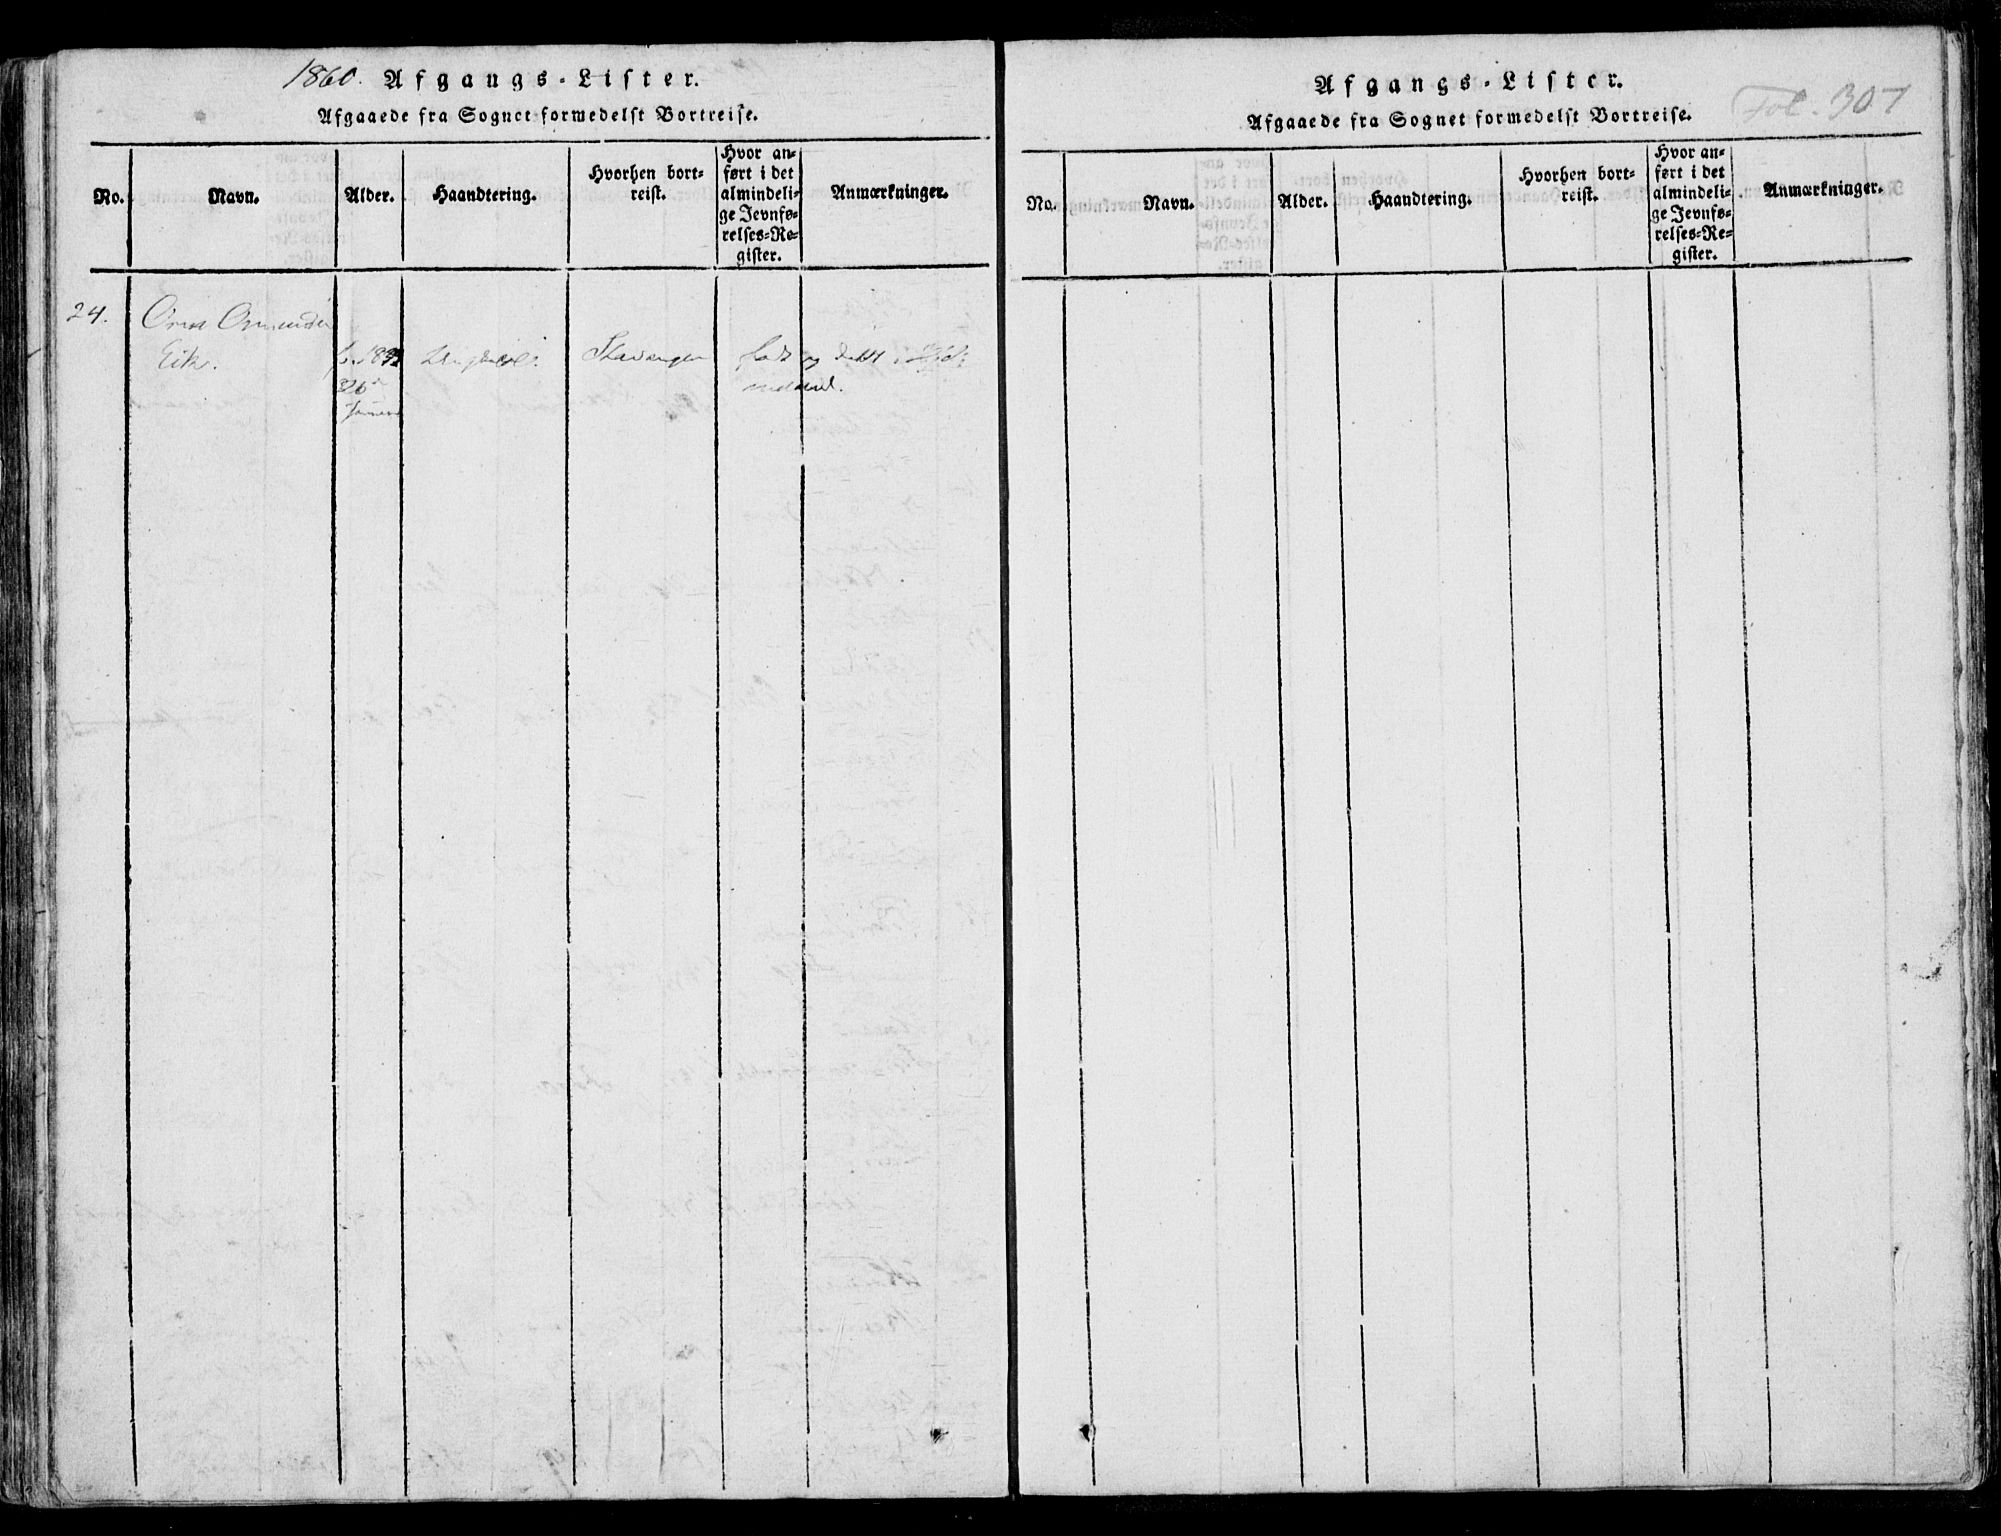 1860. Afgangs-Lister.
Afgaaede fra Sognet formedelst Bortreise.
No.
Navn.
Alder.
Haandtering.
Hvorhen bort-
reist.
Hvor an-
ført i det
almindeli-
ge Jevnfø-
relses-Re-
gister.
Anmærkninger.
24.
Eik.
Stavanger
født og
Afgangs-Lister.
Afgaaede fra Sognet formedelst Bortreise.
Fol. 307
No.
Navn.
Alder.
Haandtering.
Hvorhen bort-
reist.
Hvor an-
ført i det
almindeli-
ge Jevnfø-
relses-Re-
gister.
Anmærkninger.